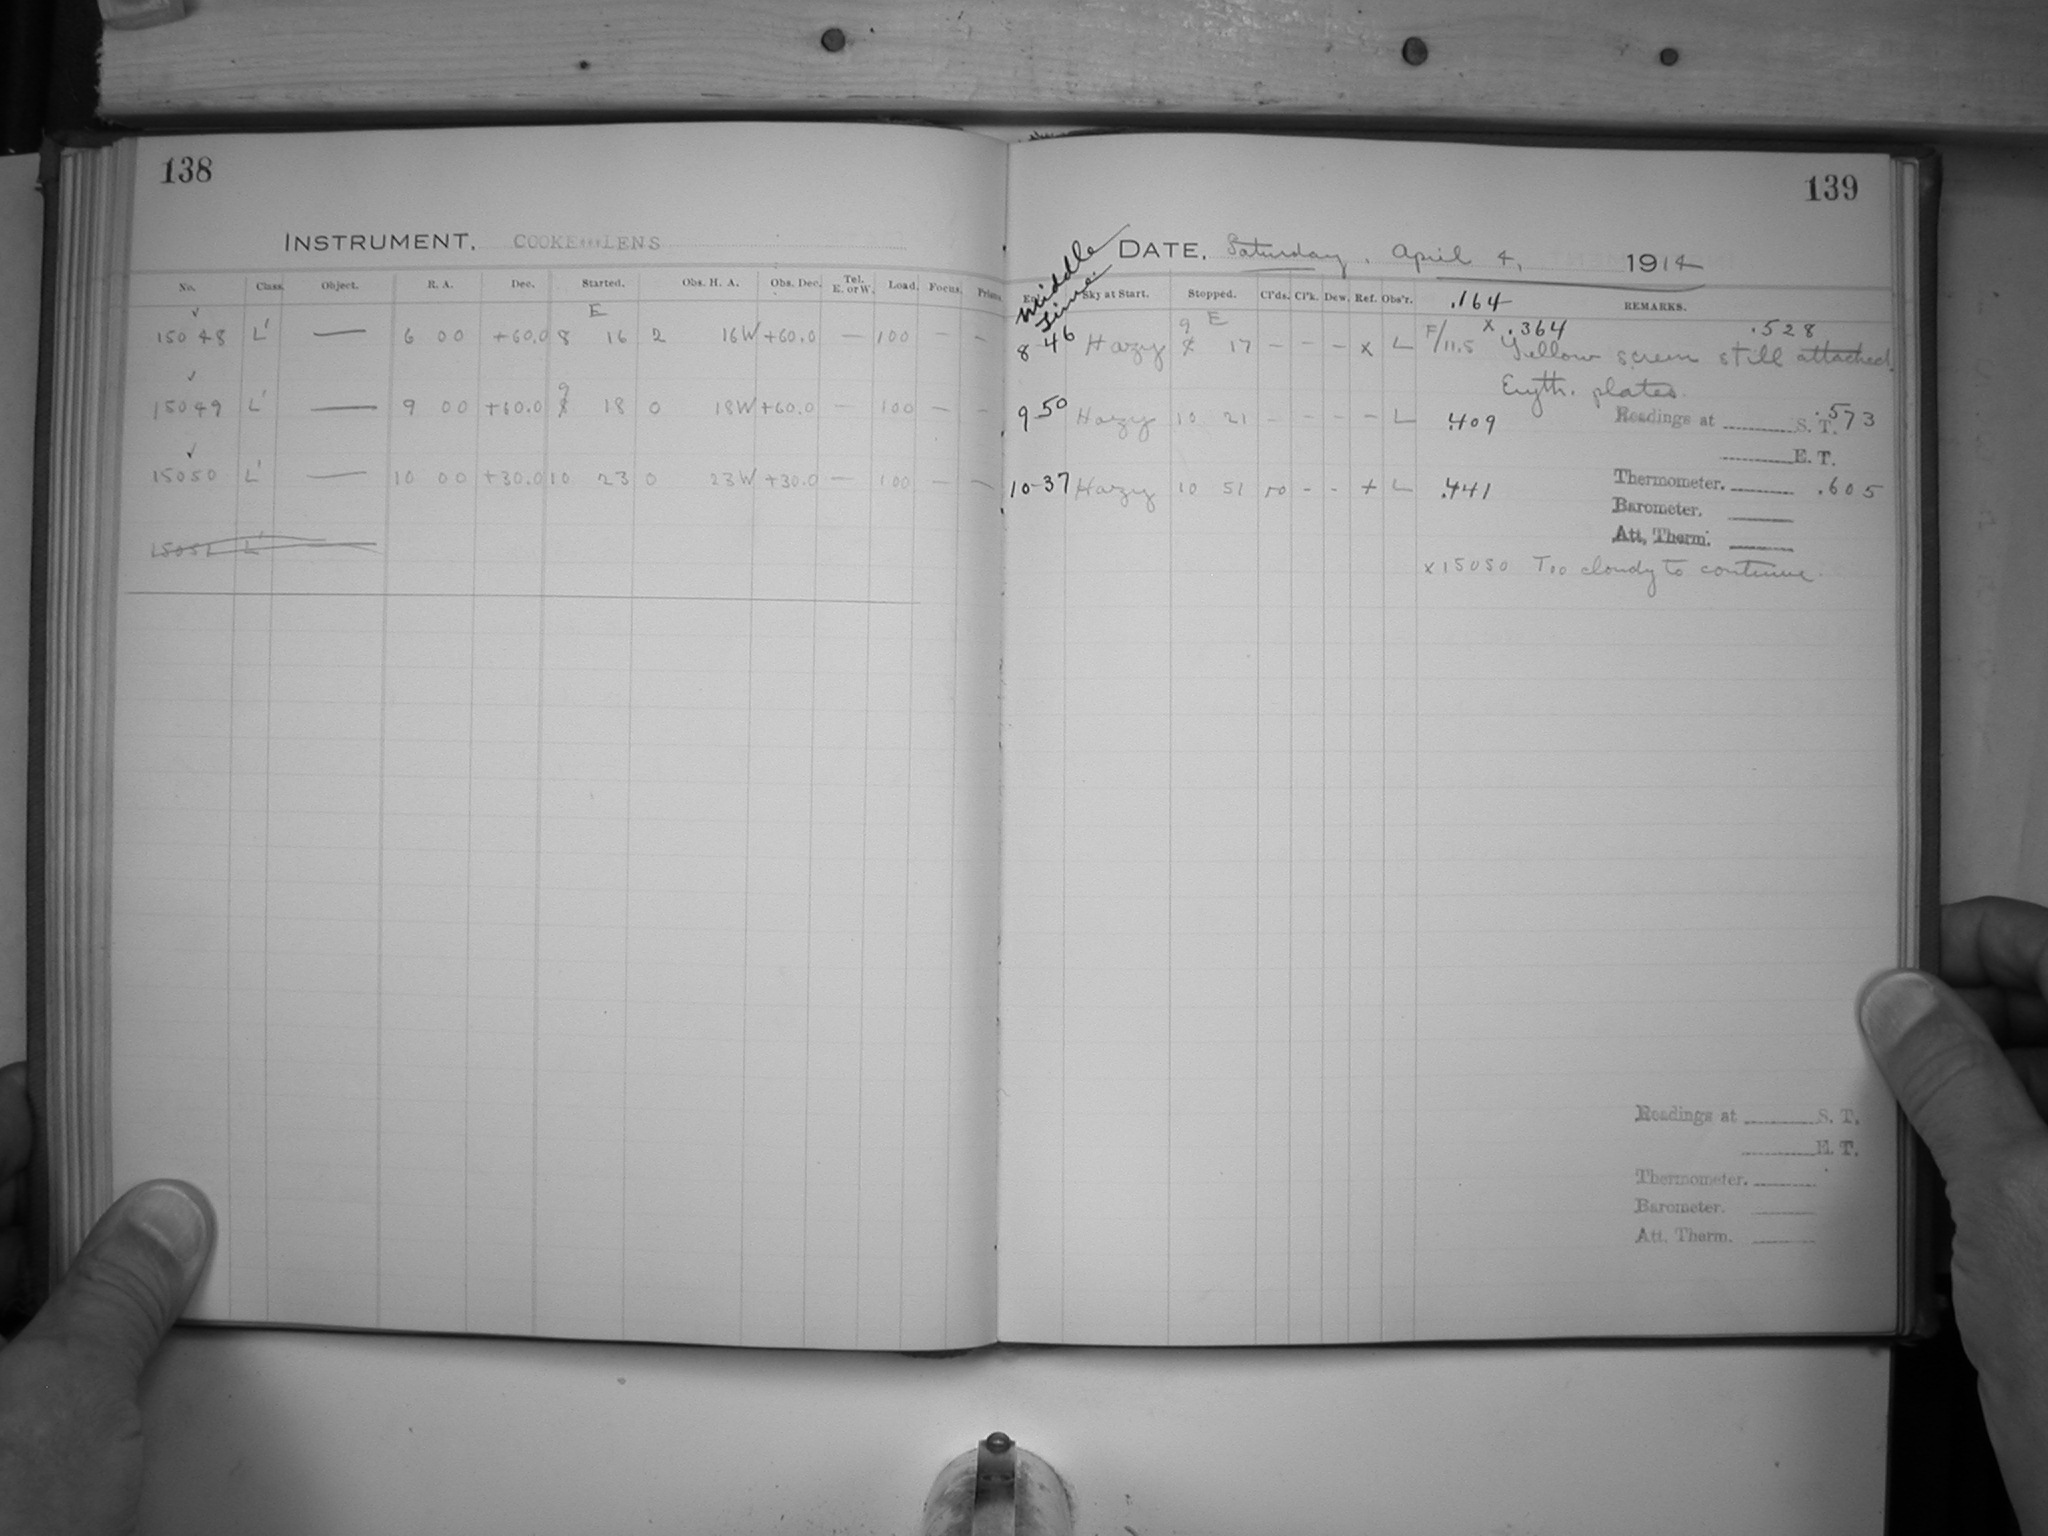 138
INSTRUMENT. COOKE LENS
No. Class. Object. R. A. Dec. Started. Obs. H. A. Obs. Dec. Tel. E. or W. Load. Focus. Prisms.
E
15048 L' — 6 00 +60.0 8 16 2 16W +60.0 — 100 — —
9
15049 L' — 9 00 +60.0 8 18 0 18W +60.0 — 100 — —
15050 L' — 10 00 +30.0 10 23 0 23W +30.0 — 100 — —
15051 L' —
139
Middle Time.
DATE. Saturday, April 4, 1914
Sky at Start. Stopped. Cl'ds. Cl'k. Dew. Ref. Obs'r. .164 REMARKS.
9 E
8-46 Hazy 8 17 — — — x L F/11.5 x .364 .528
Yellow screen still attached.
Eryth. plates.
9-50 Hazy 10 21 — — — — L .409 Readings at S. T. .573
E. T.
10-37 Hazy 10 51 10 - - + L .441 Thermometer. .605
Barometer.
Att. Therm.
x 15050 Too cloudy to continue.
Readings at S. T.
E. T.
Thermometer.
Barometer.
Att. Therm.